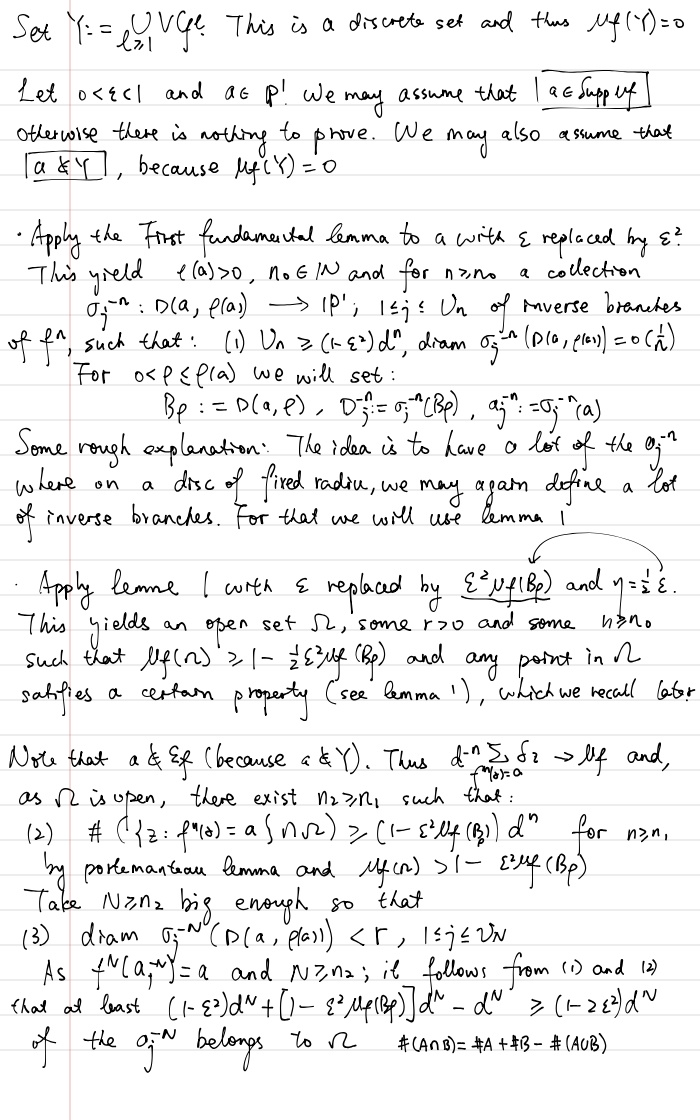 Set Y := ⋃_{ℓ≥1} VC_{f^ℓ}. This is a discrete set and thus μ_f(Y)=0
Let 0<ε<1 and a∈ℙ¹. We may assume that a∈Supp μ_f
otherwise there is nothing to prove. We may also assume that
a∉Y, because μ_f(Y)=0
· Apply the First fundamental lemma to a with ε replaced by ε².
This yield ρ(a)>0, n₀∈ℕ and for n≥n₀ a collection
σ_j^{-n} : D(a, ρ(a)) → ℙ¹; 1≤j≤ν_n of inverse branches
of fⁿ, such that: (1) ν_n ≥ (1-ε²)dⁿ, diam σ_j^{-n}(D(a, ρ(a))) = o(1/n)
For 0<ρ≤ρ(a) we will set:
B_ρ := D(a, ρ), D_j^{-n} := σ_j^{-n}(B_ρ), a_j^{-n} := σ_j^{-n}(a)
Some rough explanation: The idea is to have a lot of the a_j^{-n}
where on a disc of fixed radiu, we may again define a lot
of inverse branches. For that we will use lemma 1
· Apply lemme 1 with ε replaced by ε²μ_f(B_ρ) and η=½ε.
This yields an open set Ω, some r>0 and some n≥n₀
such that μ_f(Ω) ≥ 1-½ε²μ_f(B_ρ) and any point in Ω
satifies a certain property (see lemma 1), which we recall later
Note that a∉ℰ_f (because a∉Y). Thus d^{-n} Σ_{fⁿ(z)=a} δ_z → μ_f and,
as Ω is open, there exist n₂≥n₁ such that:
(2) #({z : fⁿ(z)=a} ∩ Ω) ≥ (1-ε²μ_f(B_ρ))dⁿ for n≥n₁
by portemanteau lemma and μ_f(Ω) > 1-ε²μ_f(B_ρ)
Take N≥n₂ big enough so that
(3) diam σ_j^{-N}(D(a, ρ(a))) < r, 1≤j≤ν_N
As f^N(a_j^{-N})=a and N≥n₂; it follows from (1) and (2)
that at least (1-ε²)d^N + [1-ε²μ_f(B_ρ)]d^N - d^N ≥ (1-2ε²)d^N
of the a_j^{-N} belongs to Ω #(A∩B) = #A + #B - #(A∪B)